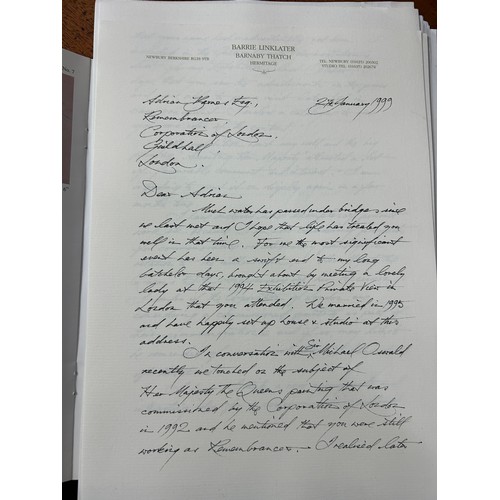 BARRIE LINKLATER
BARNABY THATCH
HERMITAGE
NEWBURY BERKSHIRE
TEL. NEWBURY
STUDIO TEL.
Adrian Barnes Esq,
January 1999
Remembrancer,
Corporation of London,
Guildhall,
London.
Dear Adrian
Much water has passed under bridges since
we last met and I hope that life has treated you
well in that time. For me the most significant
event has been a swift end to my long
batchelor days, brought about by meeting a lovely
lady at that 1994 Exhibition Private View in
London that you attended. We married in 1995
and have happily set up house & studio at this
address.
In conversation with Sir Michael Oswald
recently we touched on the subject of
Her Majesty the Queens painting that was
commissioned by the Corporation of London
in 1992 and he mentioned that you were still
working as Remembrancer. I realised later